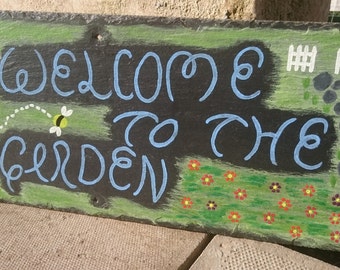 WELCOME
TO THE
GARDEN